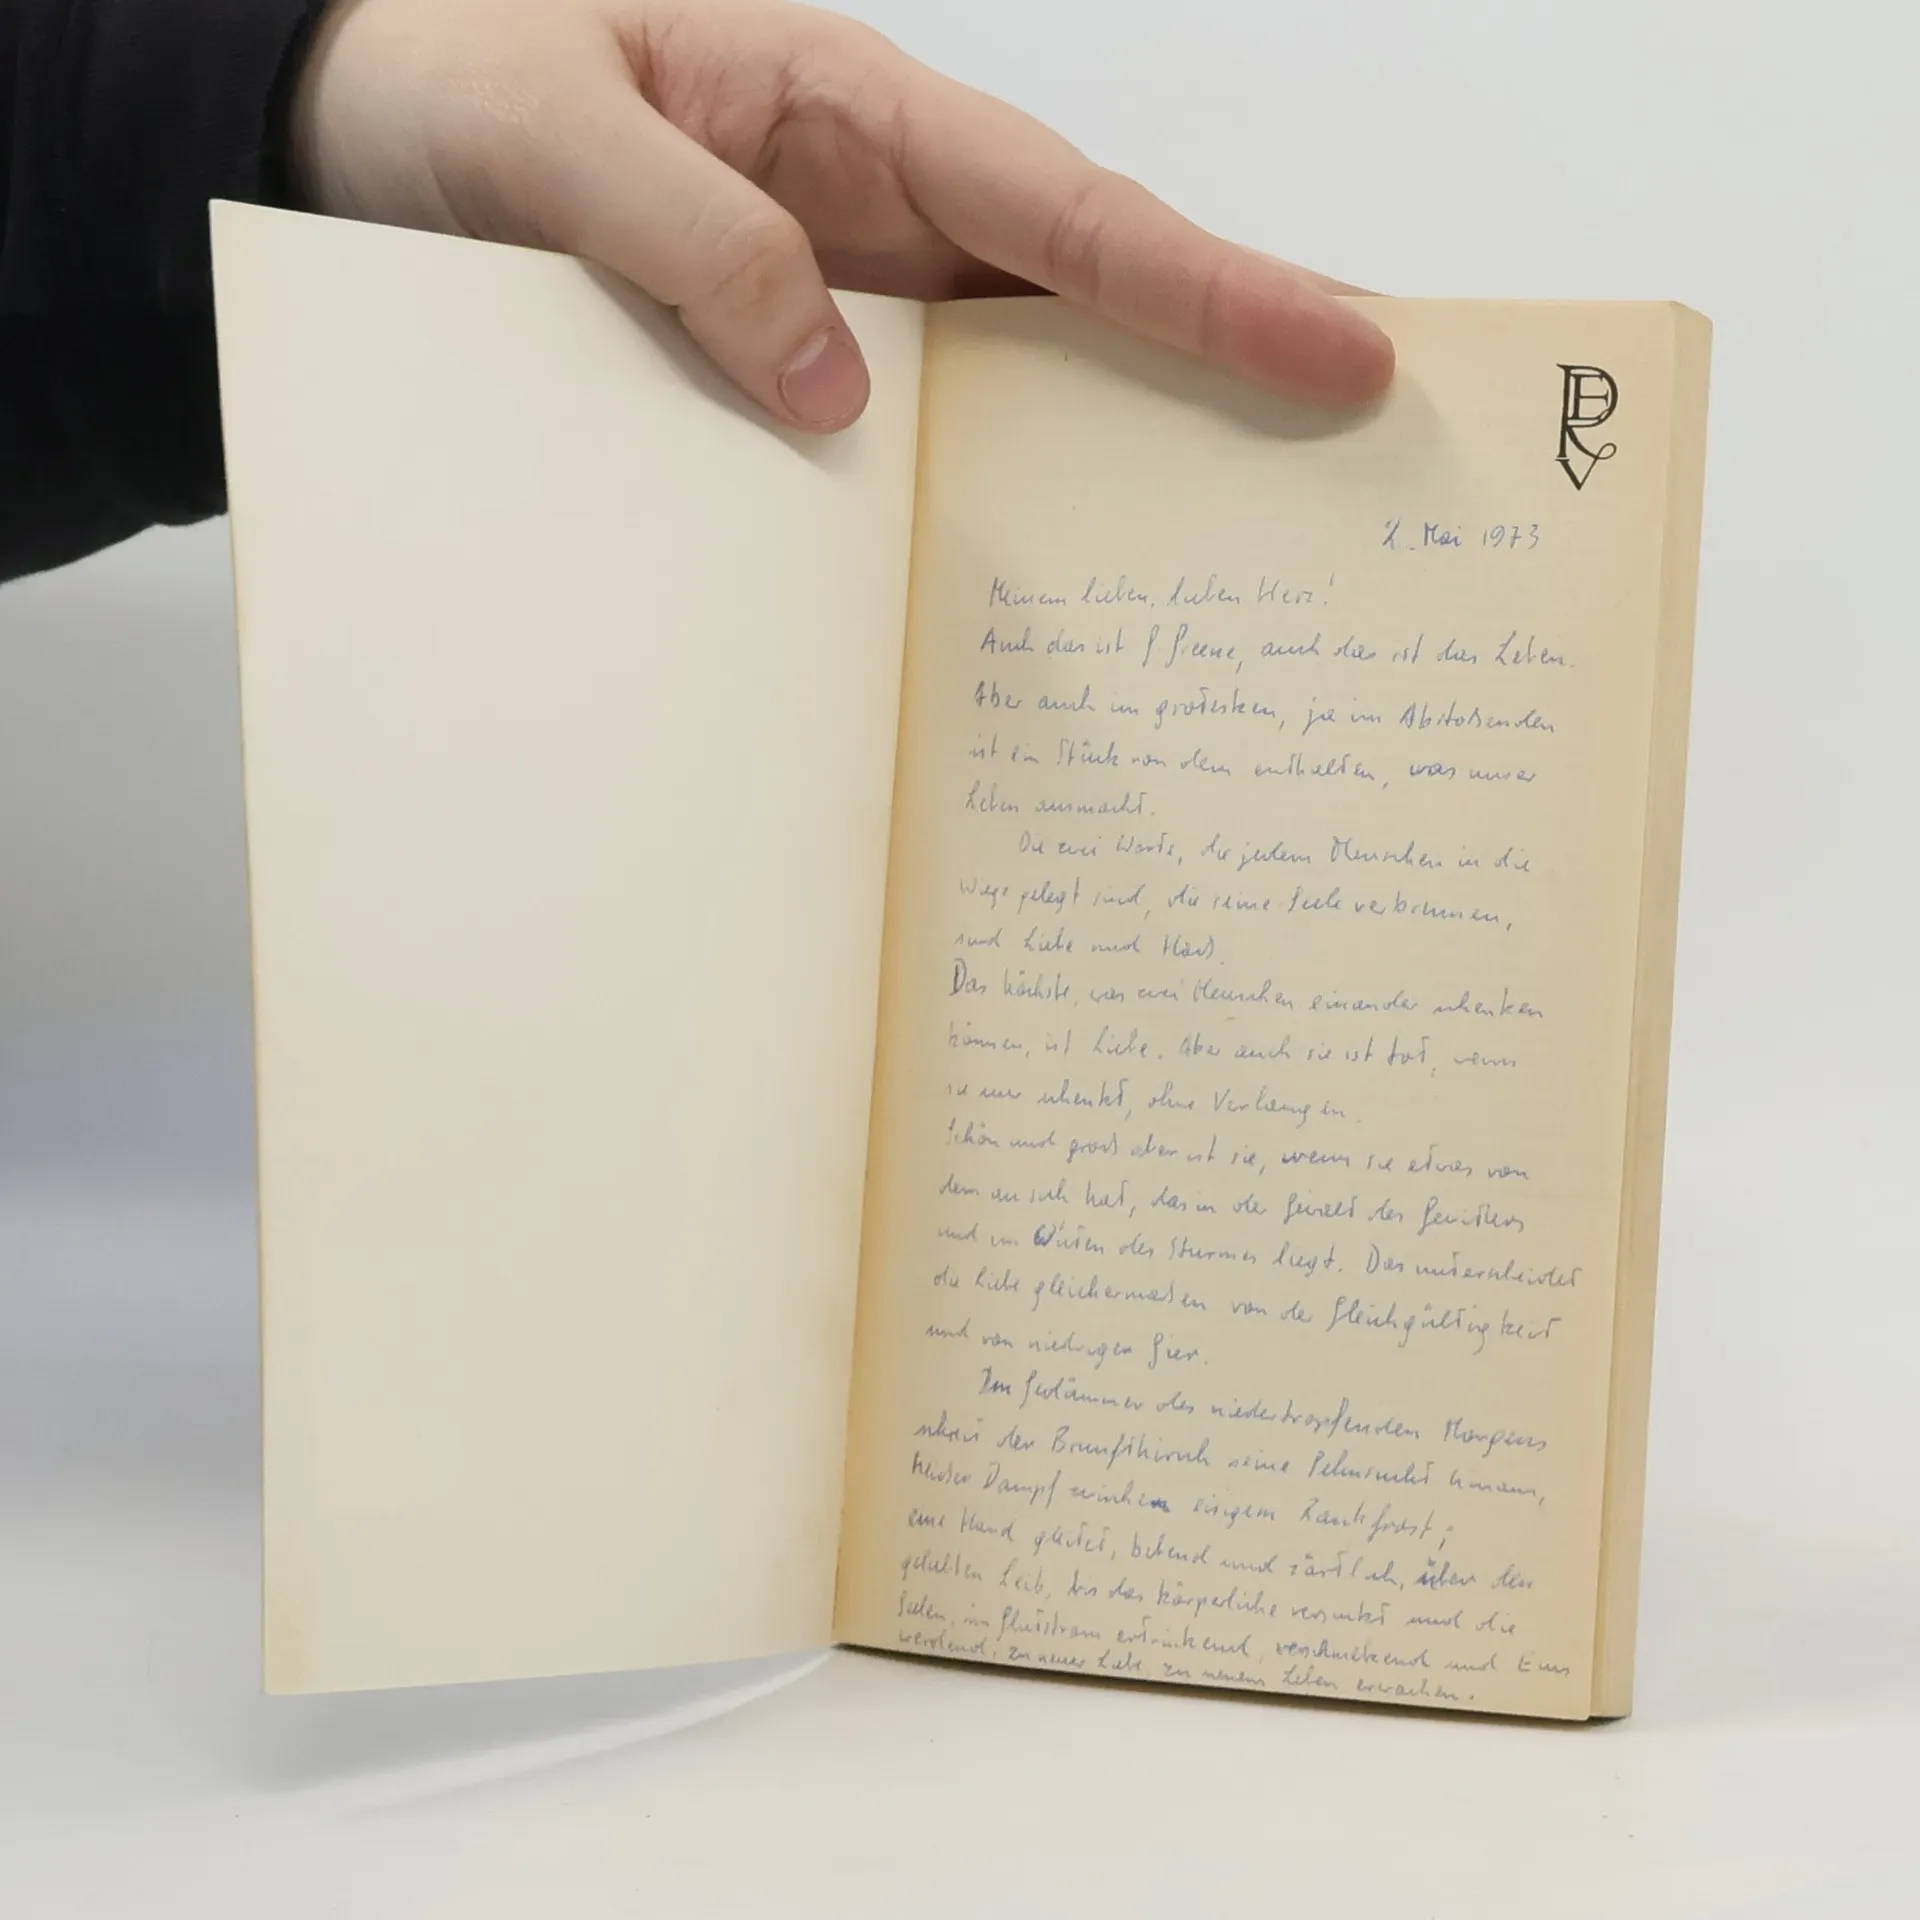 DERV
2. Mai 1973
Meinem lieben, lieben Herz!
Auch das ist G. Greene, auch das ist das Leben.
Aber auch im grotesken, ja im Abstoßenden
ist ein Stück von dem enthalten, was unser
Leben ausmacht.
Die zwei Worte, die jedem Menschen in die
Wiege gelegt sind, die seine Seele verbrennen,
sind Liebe und Haß.
Das höchste, was zwei Menschen einander schenken
können, ist Liebe. Aber auch sie ist tot, wenn
sie nur schenkt, ohne Verlangen.
Schön und groß aber ist sie, wenn sie etwas von
dem an sich hat, das in der Gewalt des Gewitters
und im Wüten des Sturmes liegt. Das unterscheidet
die Liebe gleichermaßen von der Gleichgültigkeit
und von niedriger Gier.
Im Gedämmer des niedertropfenden Morgens
schreit der Brunfthirsch seine Sehnsucht hinaus,
heißer Dampf zwischen eisigem Rauhfrost;
eine Hand gleitet, bebend und zärtlich, über den
geliebten Leib, bis das körperliche versinkt und die
Seelen, im Glutstrom ertrinkend, verschmelzend und Eins
werdend, zu neuer Liebe, zu neuem Leben erwachen.